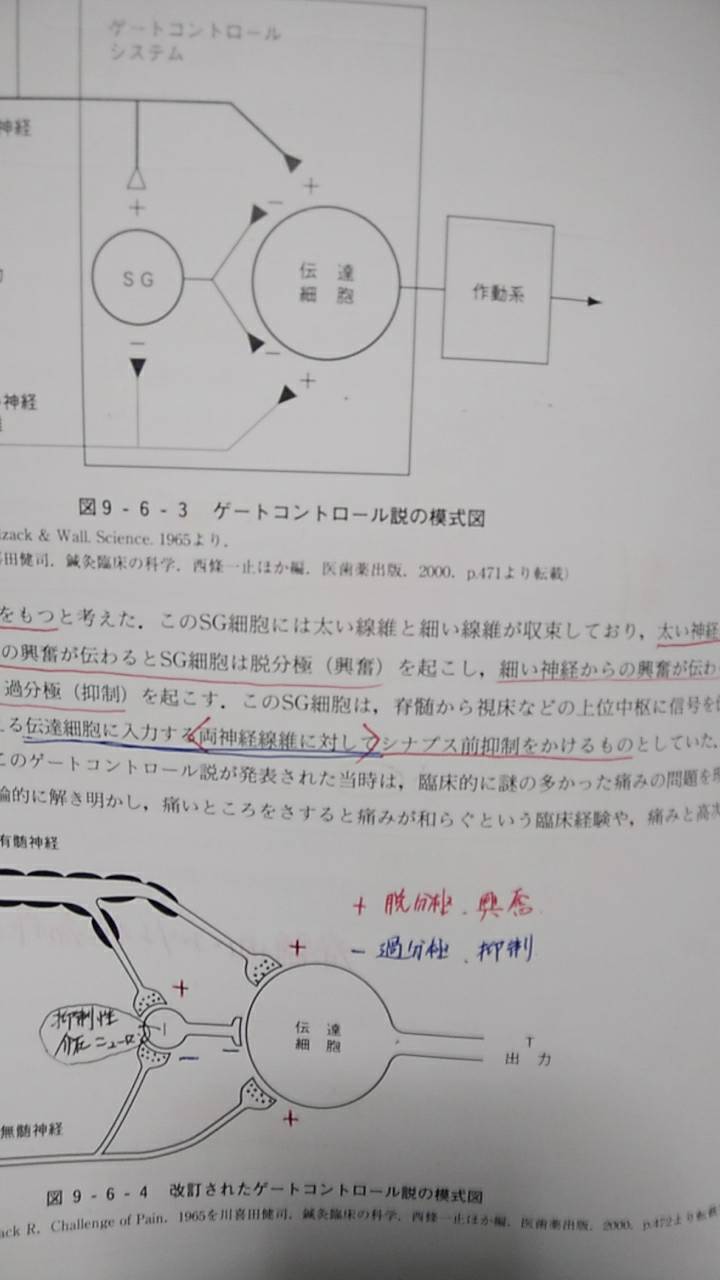 ゲートコントロール
システム
神経
+
−
+
SG
伝達
細胞
作動系
−
−
+
神経
図9-6-3 ゲートコントロール説の模式図
zack & Wall. Science. 1965より.
田健司. 鍼灸臨床の科学. 西條一止ほか編. 医歯薬出版. 2000. p.471より転載)
をもつと考えた. このSG細胞には太い線維と細い線維が収束しており, 太い神経
の興奮が伝わるとSG細胞は脱分極(興奮)を起こし, 細い神経からの興奮が伝わ
過分極(抑制)を起こす. このSG細胞は, 脊髄から視床などの上位中枢に信号を
る伝達細胞に入力する両神経線維に対してシナプス前抑制をかけるものとしていた.
このゲートコントロール説が発表された当時は, 臨床的に謎の多かった痛みの問題を
論的に解き明かし, 痛いところをさすると痛みが和らぐという臨床経験や, 痛みと高次
有髄神経
+ 脱分極. 興奮
− 過分極. 抑制
+
+
抑制性
介在ニューロン
I
伝達
細胞
−
−
T
出力
+
無髄神経
図9-6-4 改訂されたゲートコントロール説の模式図
ack R. Challenge of Pain. 1965を川喜田健司. 鍼灸臨床の科学. 西條一止ほか編. 医歯薬出版. 2000. p.472より転載